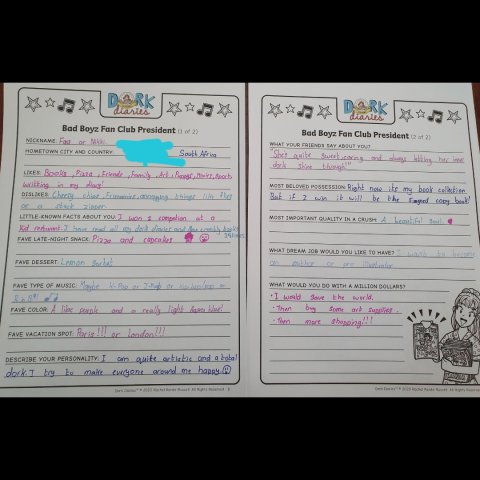 DORK
diaries
Bad Boyz Fan Club President (1 of 2)
NICKNAME: or Nikki
HOMETOWN CITY AND COUNTRY: South Africa
LIKES: Books, Pizza, Friends, Family, Art, Puppys, Movies, Sweets
writting in my diary!
DISLIKES: Cheezy chips, annoying things like flies
or a stuck zipper
LITTLE-KNOWN FACTS ABOUT YOU: I won a compettion at a
Kid resturant. I have read all my dork diaries and Tom books
FAVE LATE-NIGHT SNACK: Pizza and cupcakes
FAVE DESSERT: Lemon Sorbet
FAVE TYPE OF MUSIC: Maybe K-Pop or J-Pop or
FAVE COLOR: A lilac purple and a really light blue!
FAVE VACATION SPOT: Paris!!! or London!!!
DESCRIBE YOUR PERSONALITY: I am quite artistic and a total
dork. I try to make everyone around me happy.
Dork Diaries™ © 2020 Rachel Renée Russell. All Rights Reserved.
DORK
diaries
Bad Boyz Fan Club President (2 of 2)
WHAT YOUR FRIENDS SAY ABOUT YOU?
"She's quite sweet, caring and always letting her inner
dork shine through!"
MOST BELOVED POSSESSION: Right now its my book collection
But if I win it will be the signed copy book!
MOST IMPORTANT QUALITY IN A CRUSH: A beautiful Soul.
WHAT DREAM JOB WOULD YOU LIKE TO HAVE? I want to become
an author or pro illustrator
WHAT WOULD YOU DO WITH A MILLION DOLLARS?
• I would save the world.
• Then buy some art supplies.
• Then more shopping!!!
Dork Diaries™ © 2020 Rachel Renée Russell. All Rights Reserved.